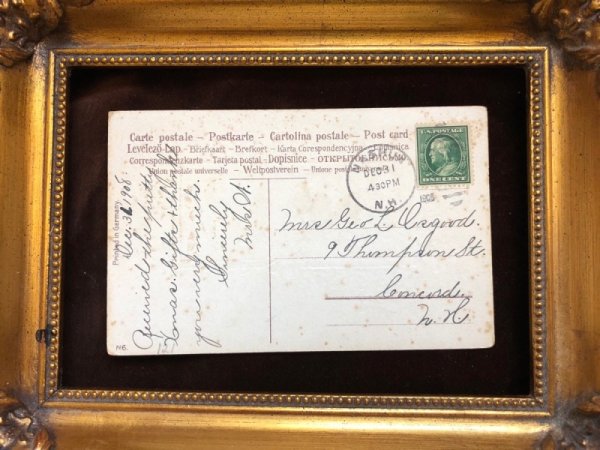 Carte postale – Postkarte – Cartolina postale – Post card
Levelező-Lap. – Briefkaart – Brefkort – Karta Correspondencyjna –
Correspondenzkarte – Tarjeta postal – Dopisnice – ОТКРЫТОЕ ПИСЬМО
Union postale universelle – Weltpostverein – Unione postale
Printed in Germany
Dec. 31 1908.
Received the pretty
Xmas gifts & thanks
you very much
Sincerely
N6.
U.S. POSTAGE
ONE CENT
DEC 31
4 30 PM
N.H.
1908
Mrs Geo L Osgood.
9 Thompson St.
Concord.
N. H.